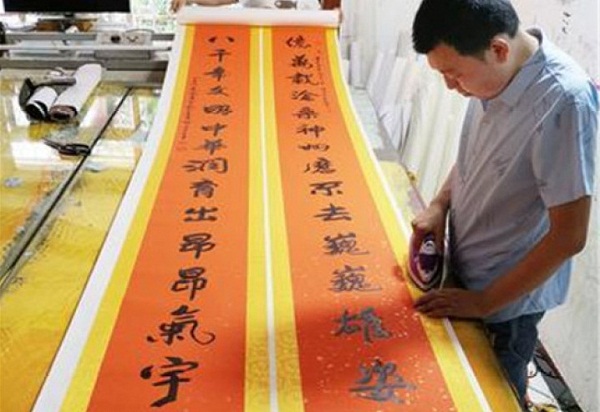 億萬載滄桑神州不去巍巍雄姿
八千年文明中華潤育出昂昂氣宇